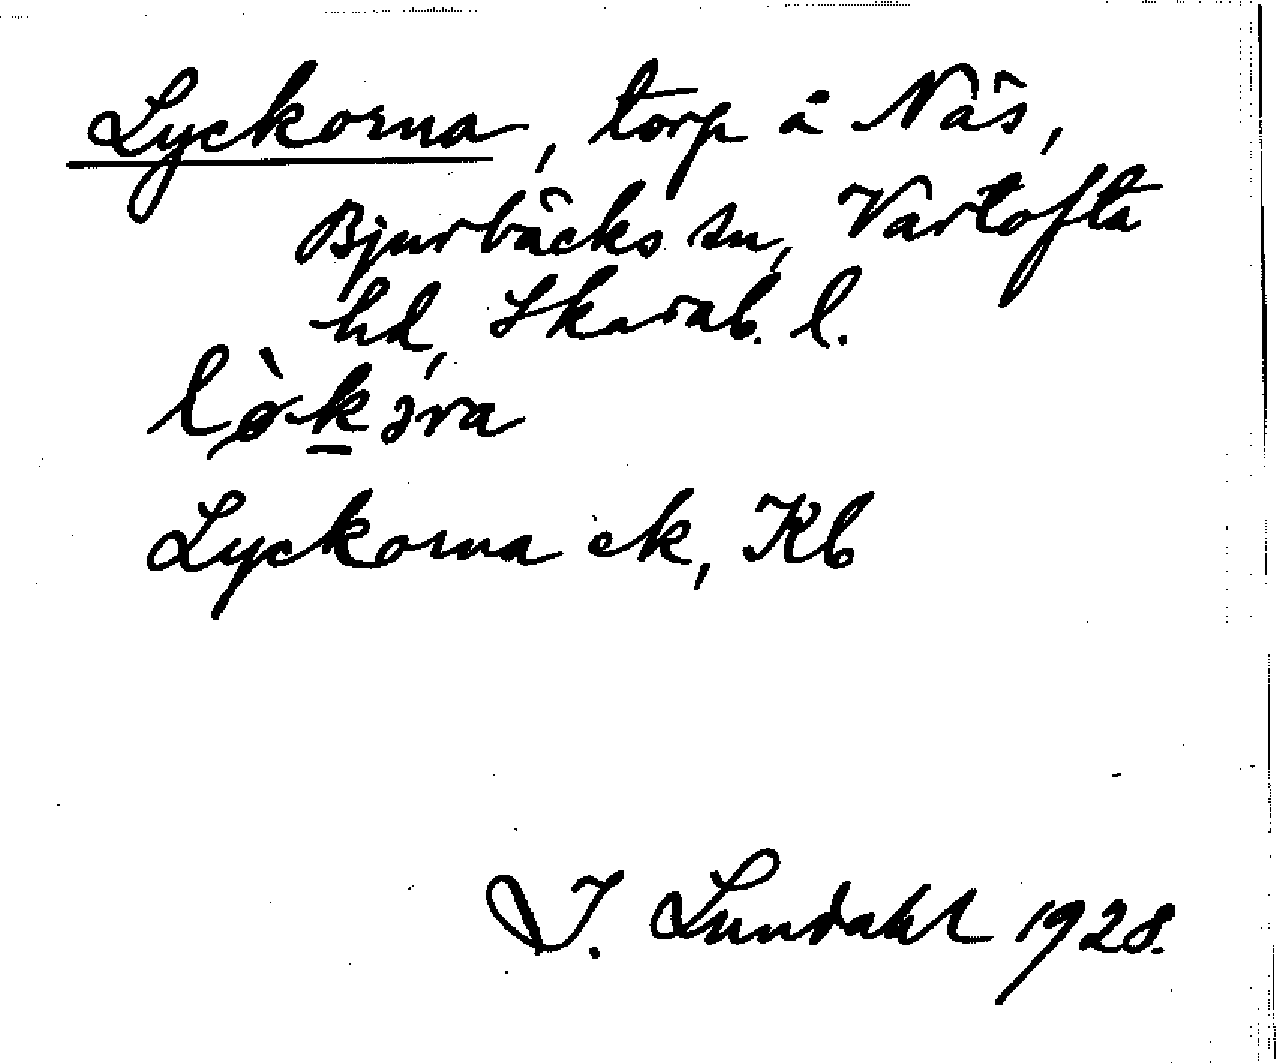 Lyckorna, torp å Näs,
Bjurbäcks sn, Vartofta
hd, Skarab. l.
lø̀k̲əra
Lyckorna ek, Kb
I. Lundahl 1928.